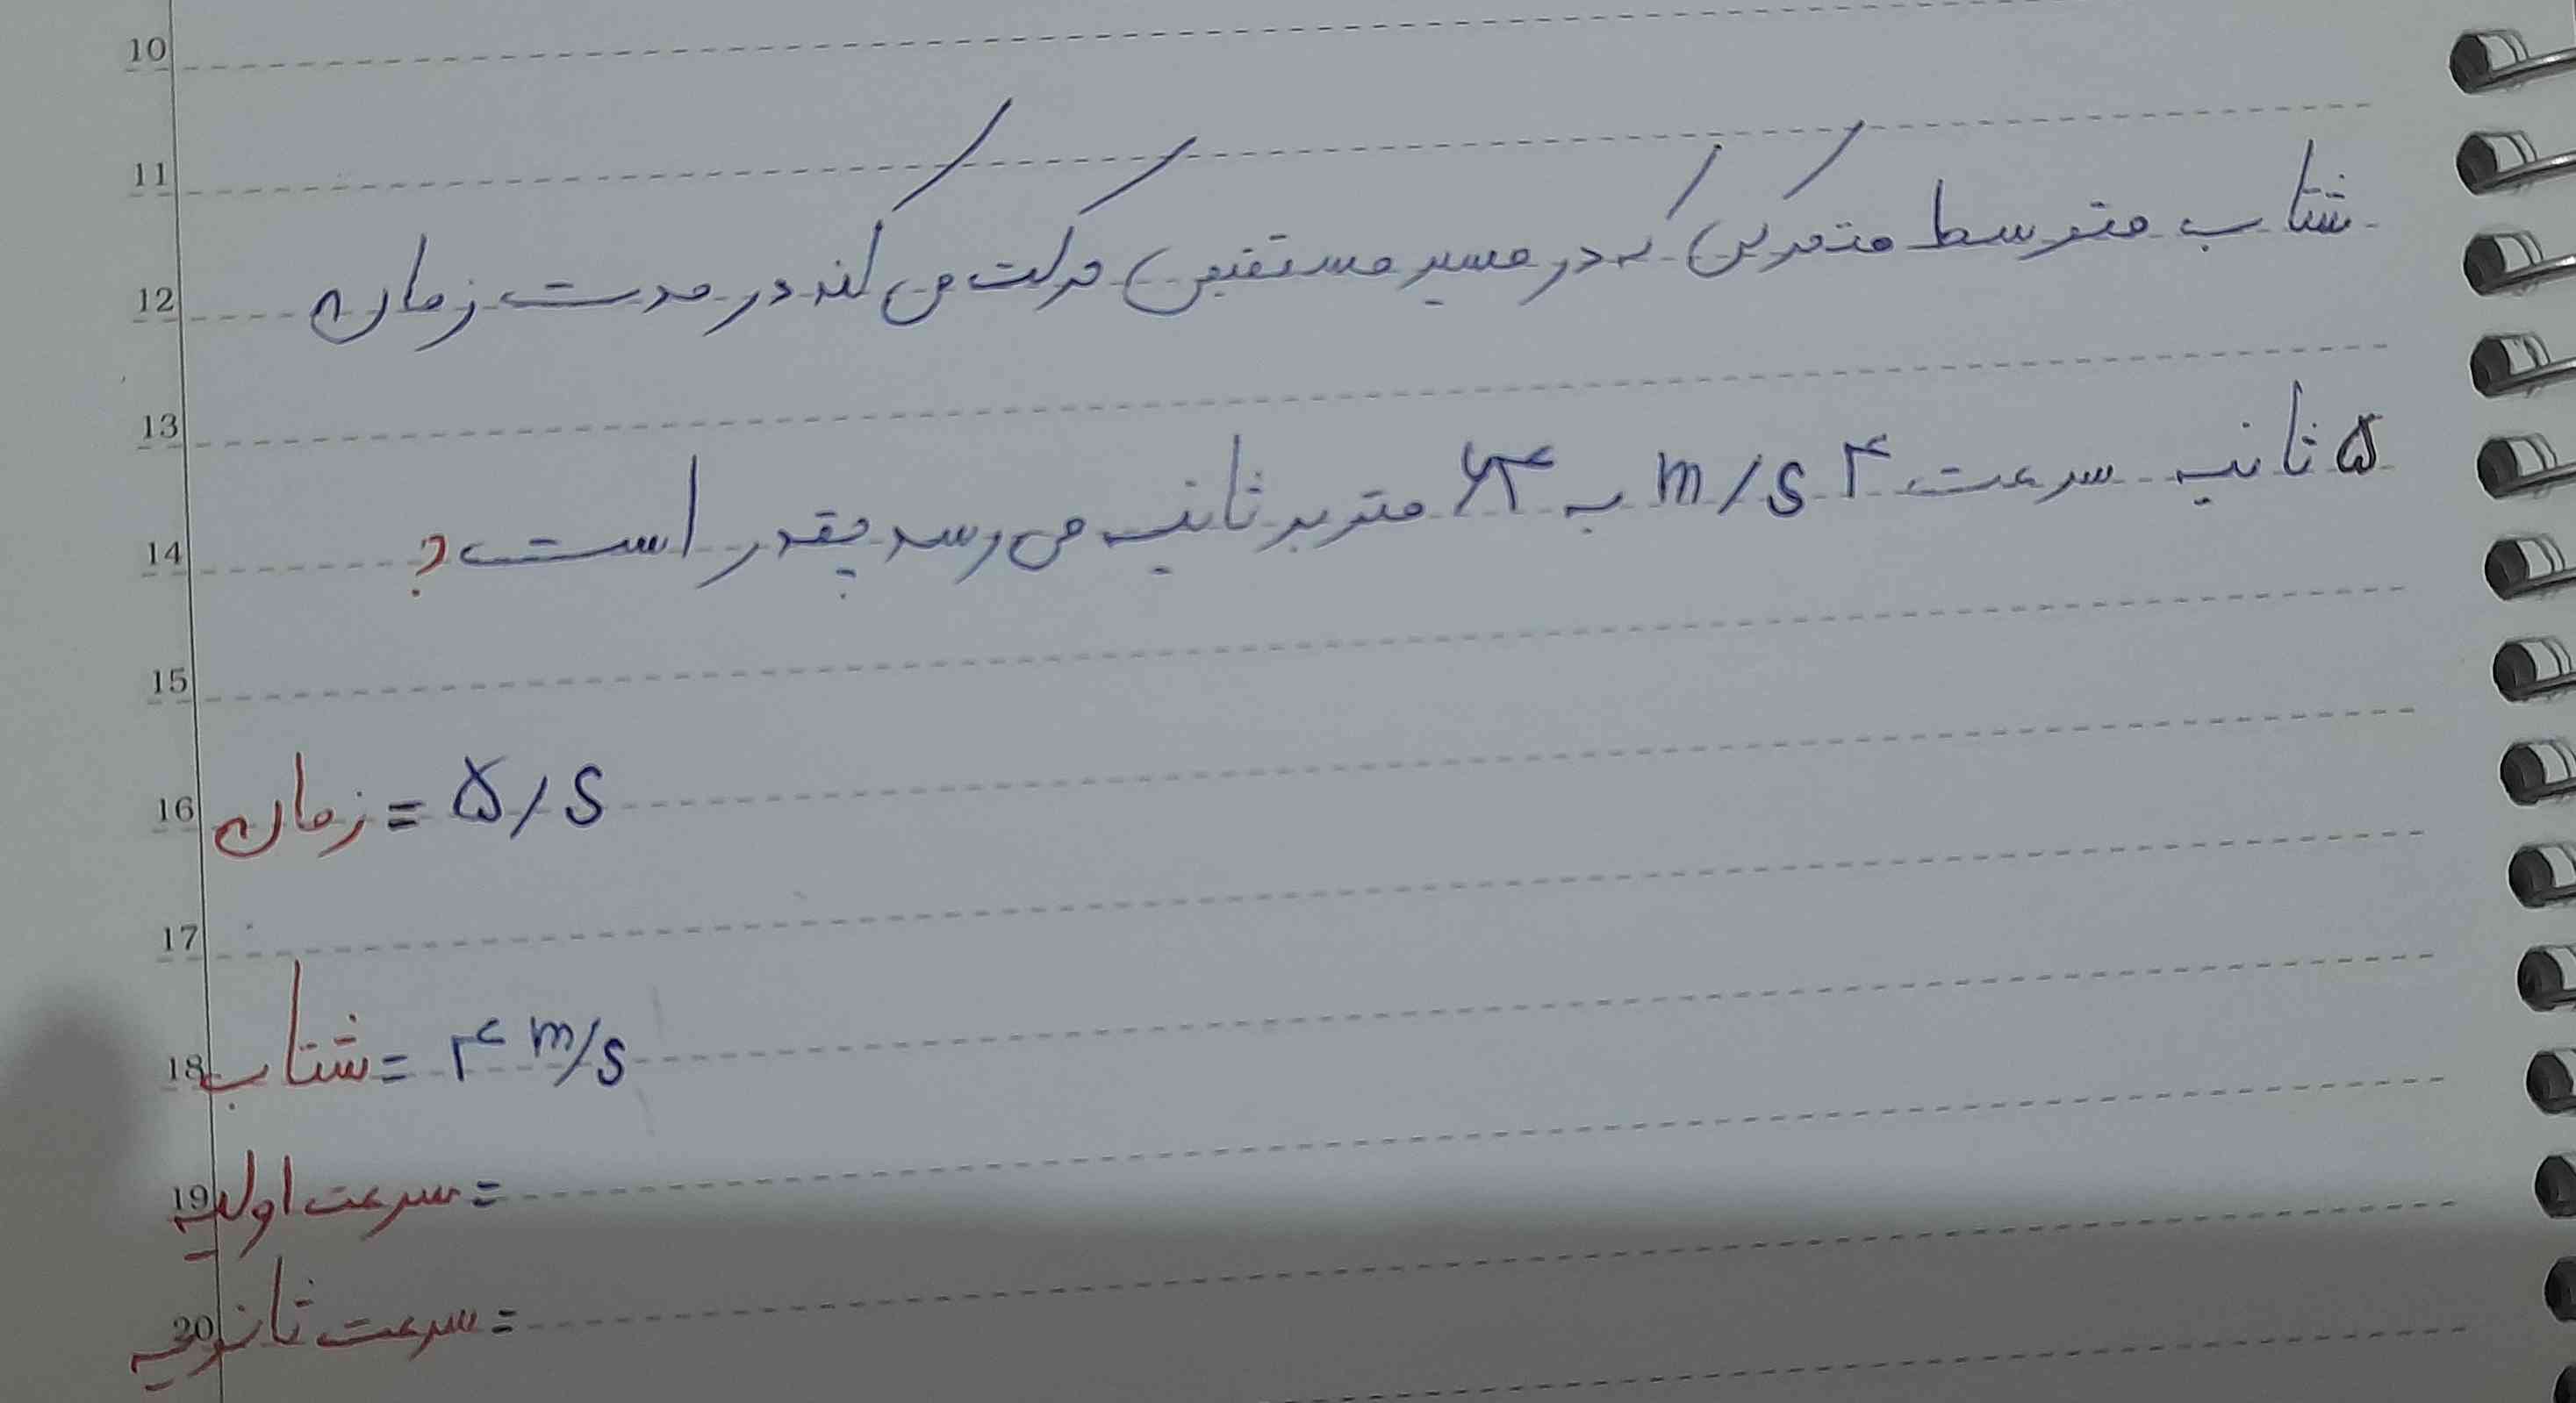 10
11
12 شتاب متوسط متحرکی که در مسیر مستقیمی حرکت می کند در مدت زمان
13
14 ۵ ثانیه سرعت ۴ m/s به ۶۴ متر بر ثانیه می رسد چقدر است؟
15
16 زمان = ۵/s
17
18 شتاب = ۴ m/s
19 سرعت اولیه =
20 سرعت ثانویه =